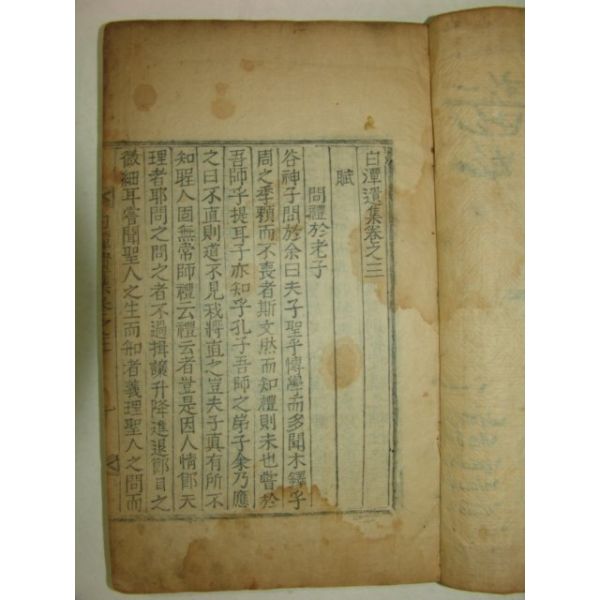 白潭遺集卷之三
賦
問禮於老子
谷神子問於余曰夫子聖乎博學而多聞木鐸乎
周之季賴而不喪者斯文然而知禮則未也嘗於
吾師乎提耳子亦知乎孔子吾師之弟子余乃應
之曰不直則道不見我將直之豈夫子真有所不
知聖人固無常師禮云禮云者豈是因人情節天
理者耶問之問之者不過揖讓升降進退節目之
微細耳嘗聞聖人之生而知者義理聖人之問而